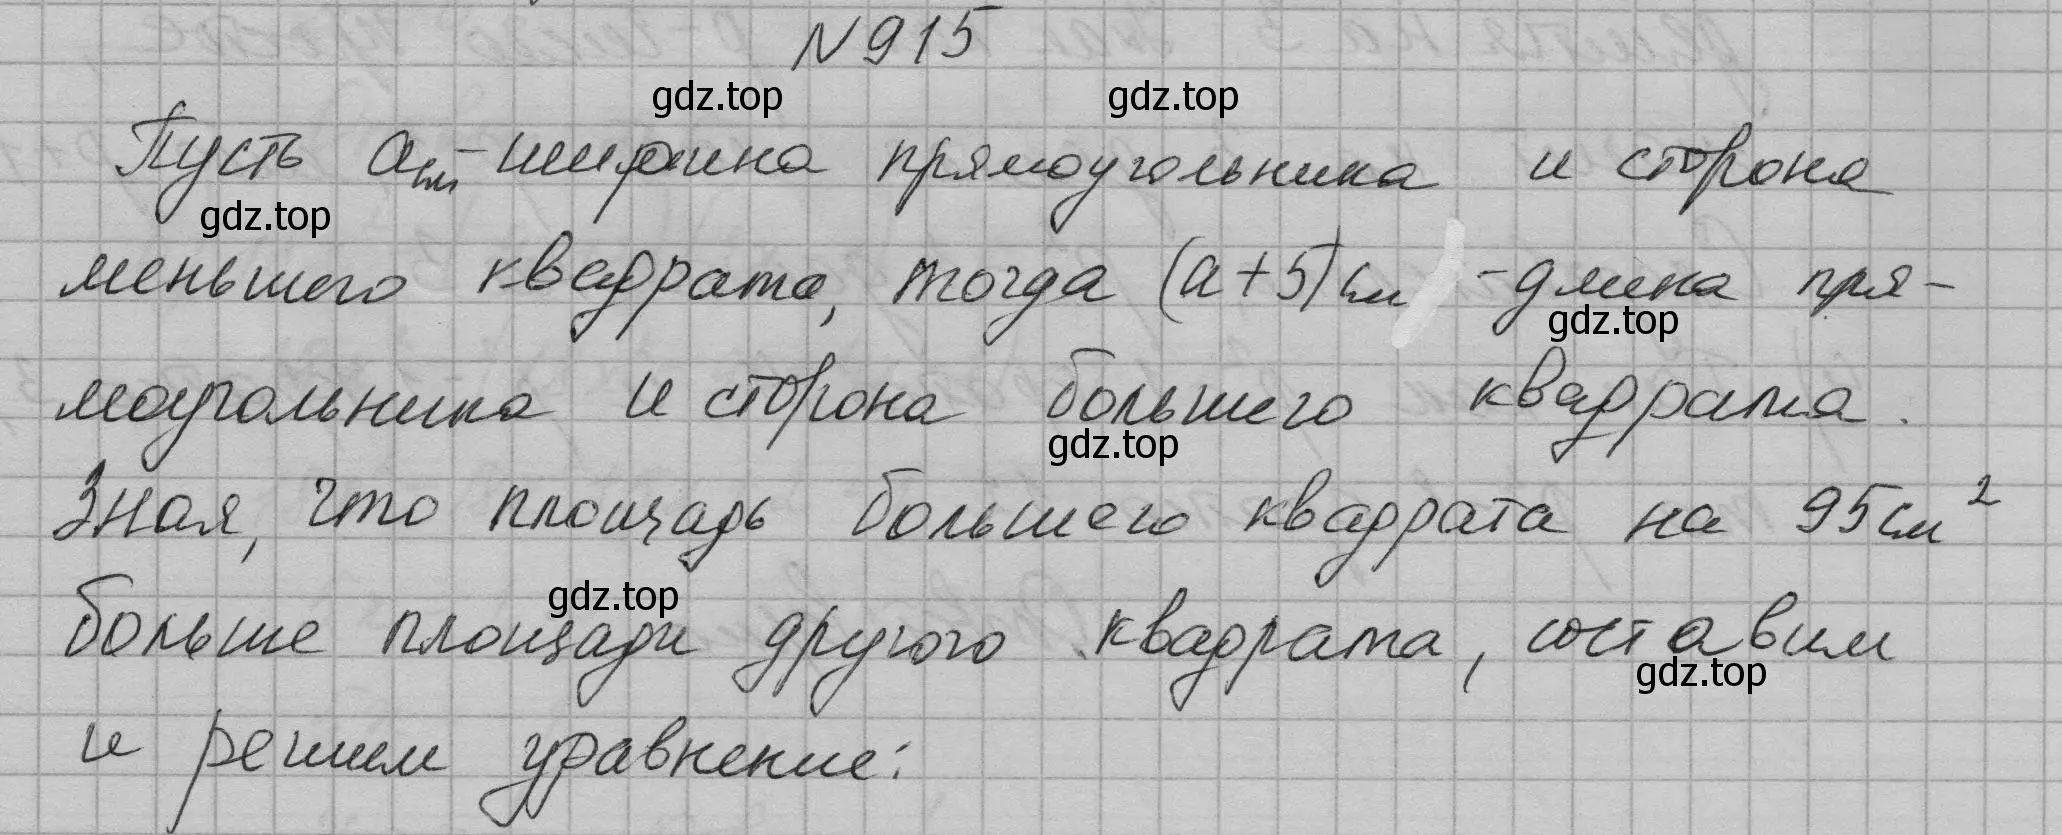 N 915
gdz.top gdz.top
Пусть a см - ширина прямоугольника и сторона
gdz.top
меньшего квадрата, тогда (a+5) см - длина пря-
gdz.top
моугольника и сторона большего квадрата.
gdz.top
Зная, что площадь большего квадрата на 95 см²
gdz.top
больше площади другого квадрата, составим
gdz.top
и решим уравнение: